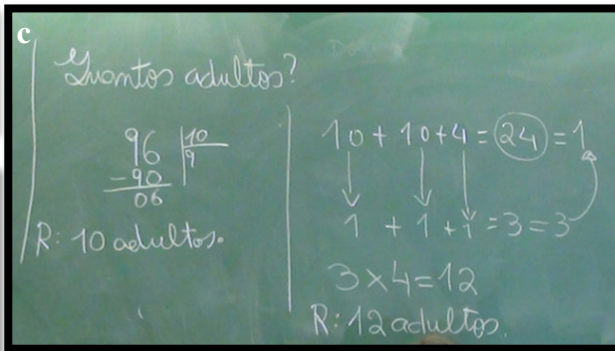 c
Quantos adultos?
96 | 10
-90 9
06
R: 10 adultos.
10 + 10 + 4 = 24 = 1
1 + 1 + 1 = 3 = 3
3 x 4 = 12
R: 12 adultos.